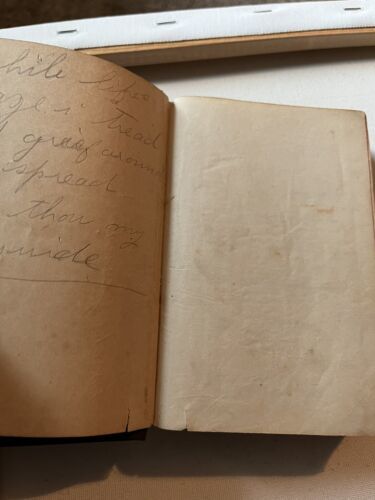 hile lifes
aze i tread
griefs around
spread
thou my
uide